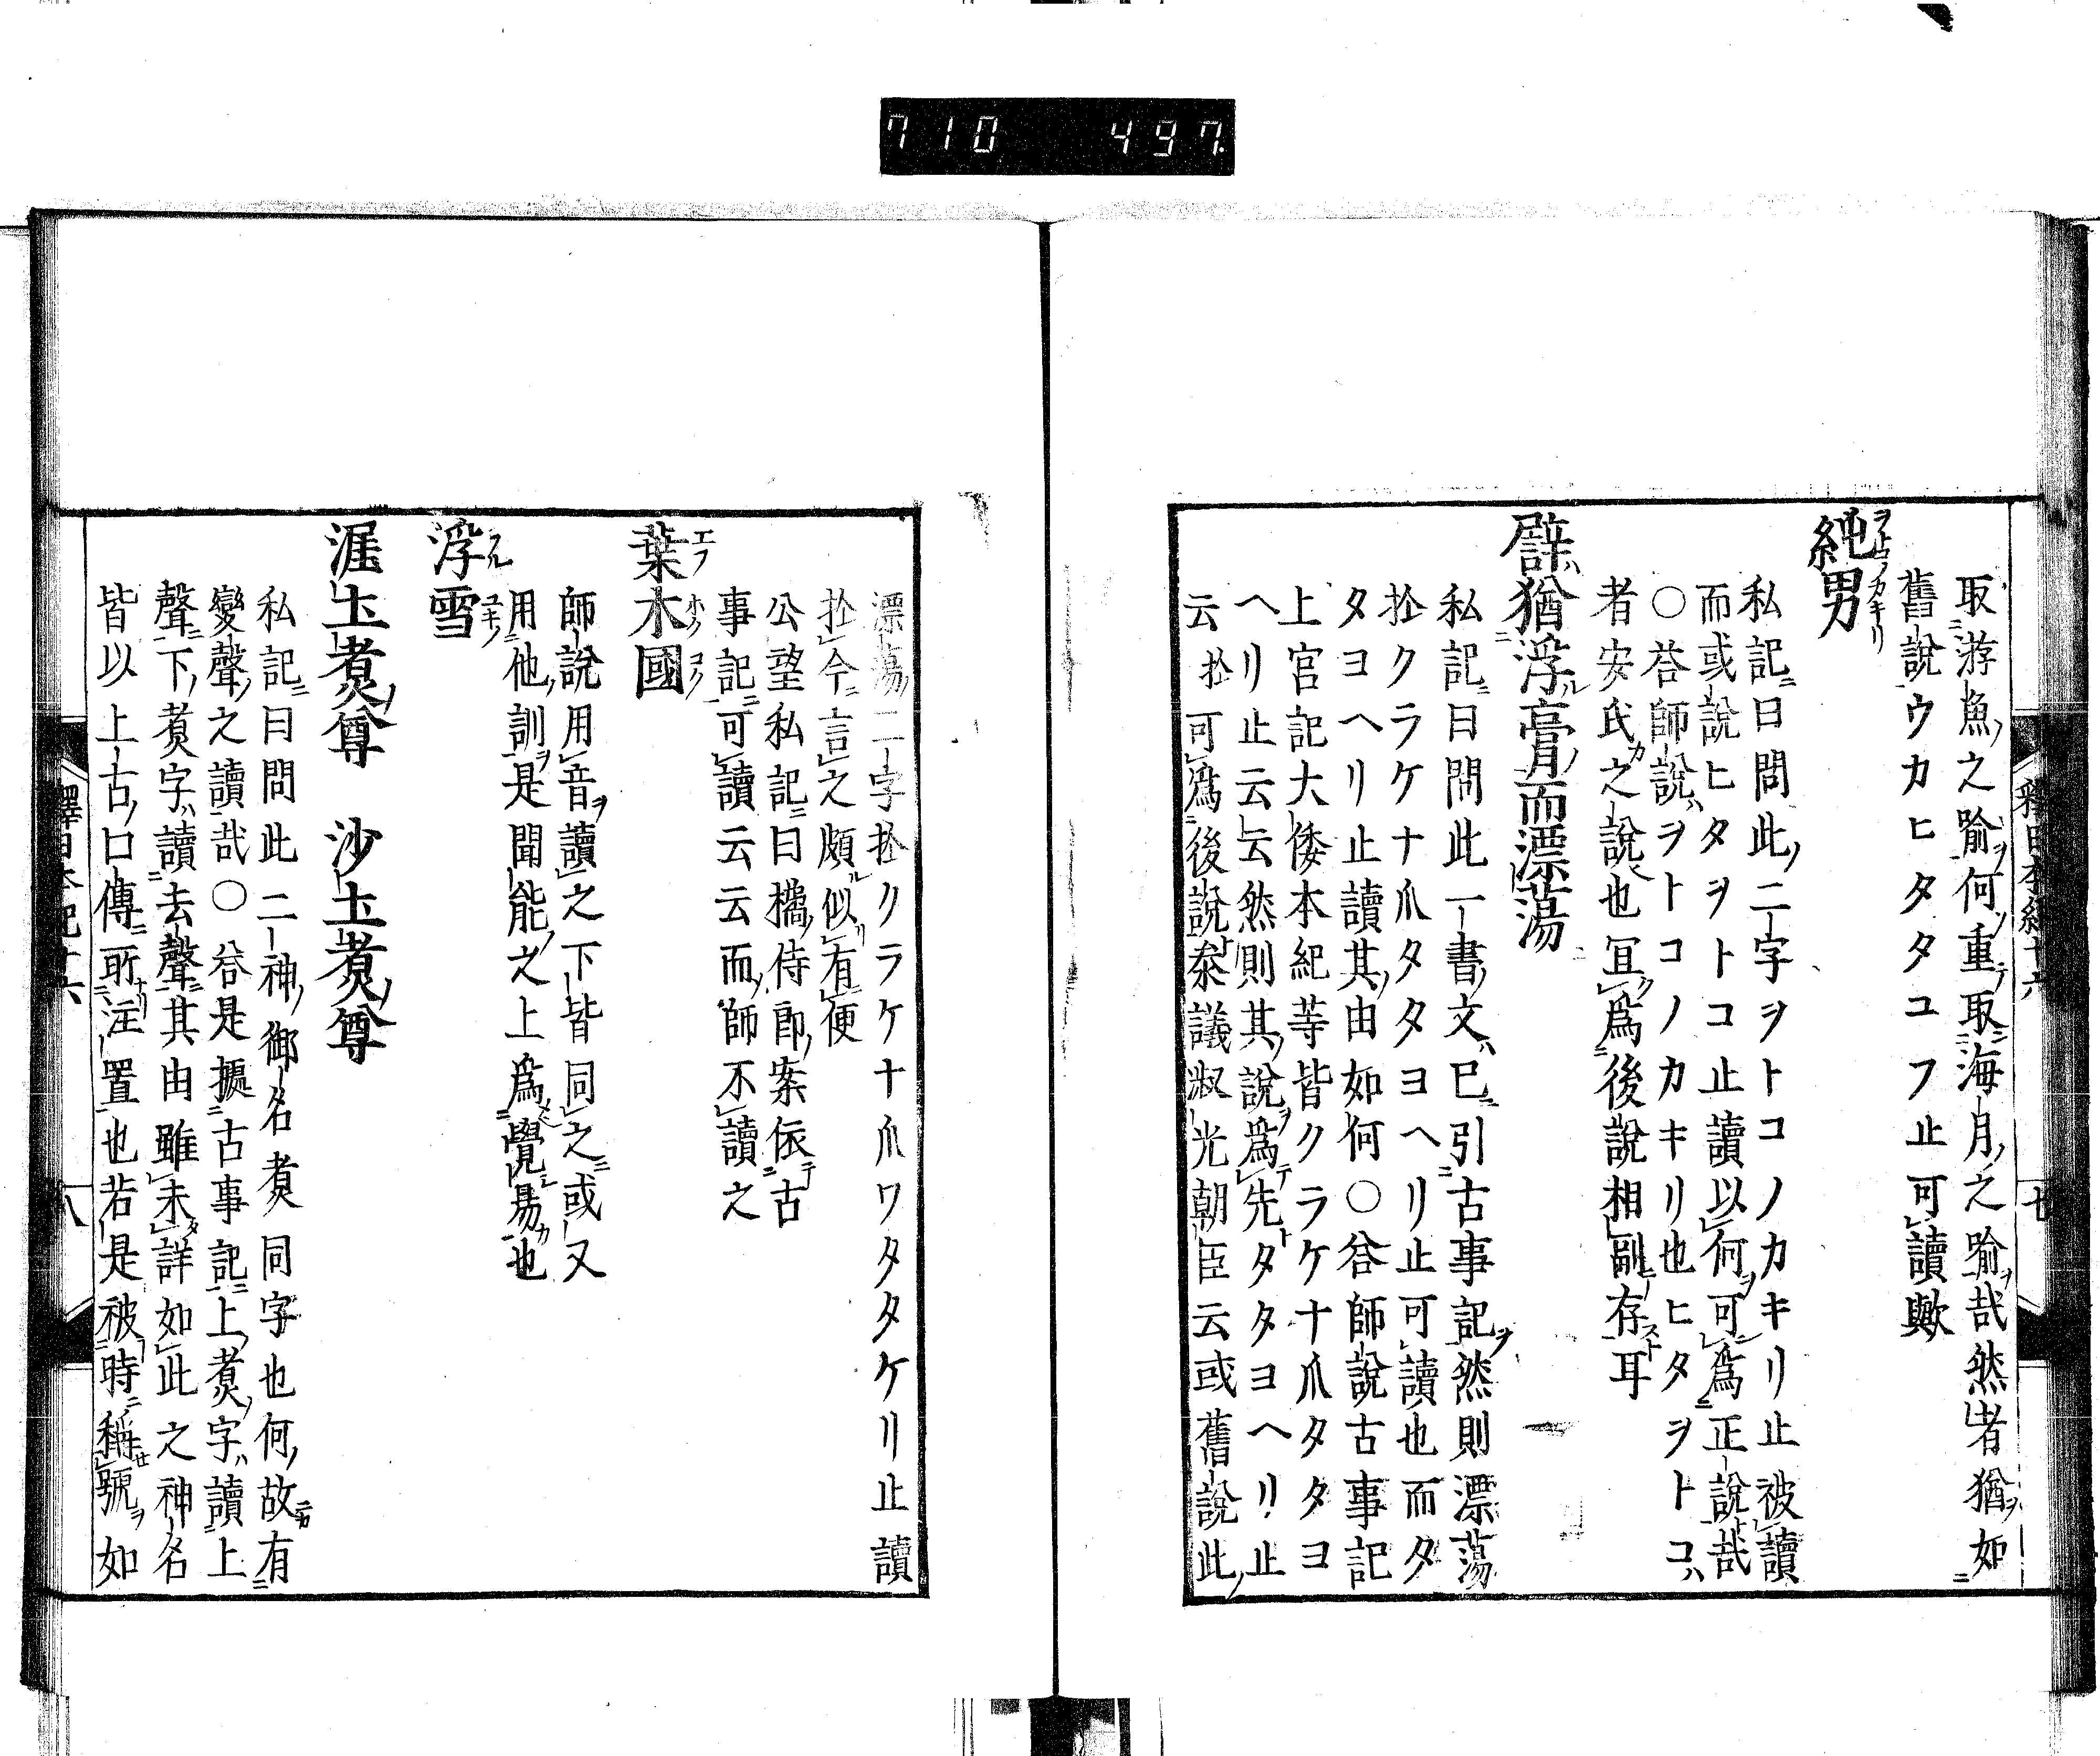 710 497.
釋日本紀十六 七
取游魚之喻何重取海月之喻哉然者猶如
舊說ウカヒタタユフ止可讀歟
純男
私記曰問此二字ヲトコノカキリ止被讀
而或說ヒタヲトコ止讀以何可爲正說哉
○答師說ヲトコノカキリ也ヒタヲトコハ
者安氏之說也冝爲後說相副存耳
譬猶浮膏而漂蕩
私記曰問此一書文已引古事記然則漂蕩
扵クラケナ爪タタヨヘリ止可讀也而タ
タヨヘリ止讀其由如何○答師說古事記
上官記大倭本紀等皆クラケナ爪タタヨ
ヘリ止云云然則其說爲先タタヨヘリ止
云扵可爲後說叅議淑光朝臣云或舊說此
漂蕩二字扵クラケナ爪ワタタケリ止讀
扵今言之頗似有便
公望私記曰橘侍郎案依古
事記可讀云云而師不讀之
葉木國
師說用音讀之下皆同之或又
用他訓是聞能之上爲覺易也
浮雪
涯土煑尊 沙土煑尊
私記曰問此二神御名煑同字也何故有
變聲之讀哉○答是據古事記上煑字讀上
聲下煑字讀去聲其由雖未詳如此之神名
皆以上古口傳所注置也若是被時稱號如
釋日本紀十六 八